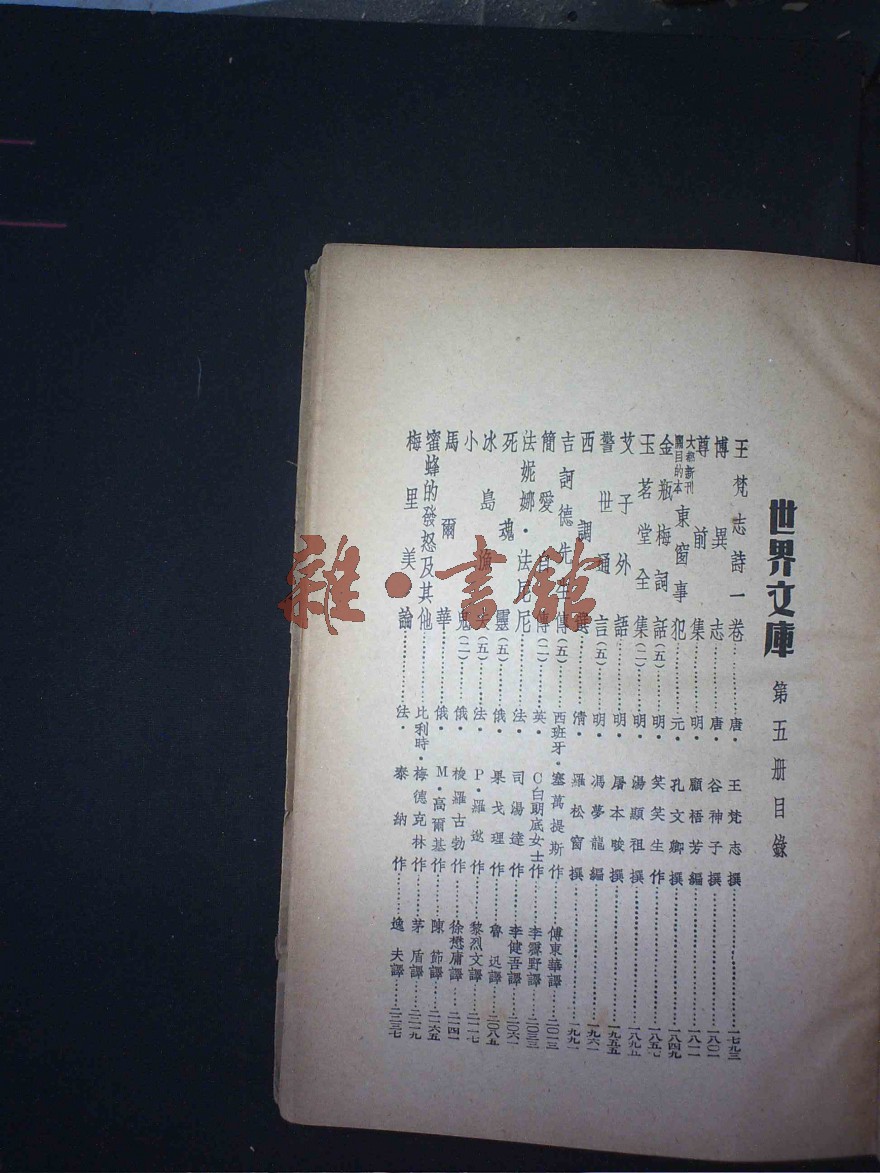 世界文庫 第五册目錄
王梵志詩一卷……唐·王梵志撰……一七九三
博異志……唐·谷神子撰……一八〇一
尊前集……明·顧梧芳編……一八一一
大都新刊關目的本東窗事犯……元·孔文卿撰……一八四九
金瓶梅詞話(五)……明·笑笑生作……一八五七
玉茗堂全集(二)……明·湯顯祖撰……一八九五
艾子外語……明·屠本畯撰……一九五五
警世通言(五)……明·馮夢龍編……一九六一
西調選……清·羅松窗撰……一九九一
吉訶德先生傳(五)……西班牙·塞萬提斯作……傅東華譯……二〇一三
簡愛自傳(二)……英·C白朗底女士作……李霽野譯……二〇三三
法妮娜·法尼尼……法·司湯達作……李健吾譯……二〇六一
死魂靈(五)……俄·果戈理作……魯迅譯……二〇八五
冰島漁夫(五)……法·P·羅逖作……黎烈文譯……二一一七
小鬼(二)……俄·梭羅古勃作……徐懋庸譯……二一四一
馬爾華……俄·M·高爾基作……陳節譯……二一六五
蜜蜂的發怒及其他……比利時·梅德克林作……茅盾譯……二二一九
梅里美論……法·泰納作……逸夫譯……二二三七
雜·書館